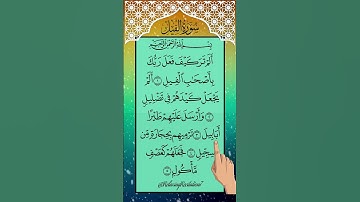 سُورَةُ الْفِيلِ
بِسْمِ اللَّهِ الرَّحْمَٰنِ الرَّحِيمِ
أَلَمْ تَرَ كَيْفَ فَعَلَ رَبُّكَ
بِأَصْحَابِ الْفِيلِ ١ أَلَمْ
يَجْعَلْ كَيْدَهُمْ فِي تَضْلِيلٍ
٢ وَأَرْسَلَ عَلَيْهِمْ طَيْرًا
أَبَابِيلَ ٣ تَرْمِيهِمْ بِحِجَارَةٍ مِّن
سِجِّيلٍ ٤ فَجَعَلَهُمْ كَعَصْفٍ
مَّأْكُولٍ ٥